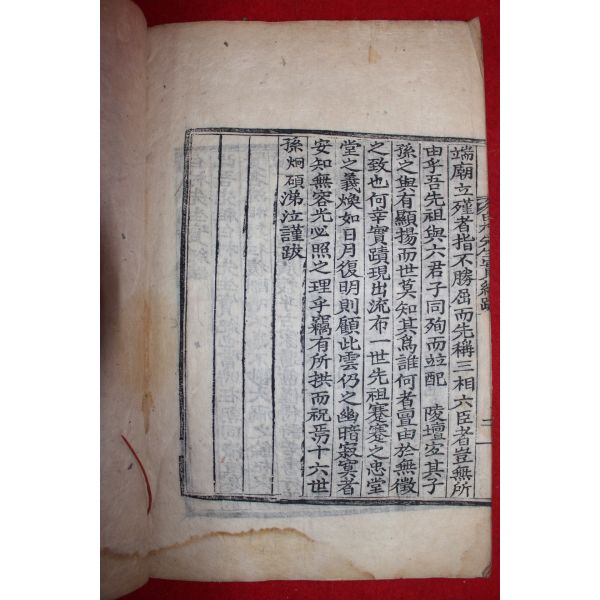 端廟立殣者指不勝屈而先稱三相六臣者豈無所
由乎吾先祖與六君子同殉而並配　陵壇宜其子
孫之與有顯揚而世莫知其爲誰何者亶由於無徵
之致也何幸實蹟現出流布一世先祖蹇蹇之忠堂
堂之義煥如日月復明則顧此雲仍之幽暗寂寞者
安知無容光必照之理乎竊有所拱而祝焉十六世
孫炯碩涕泣謹跋